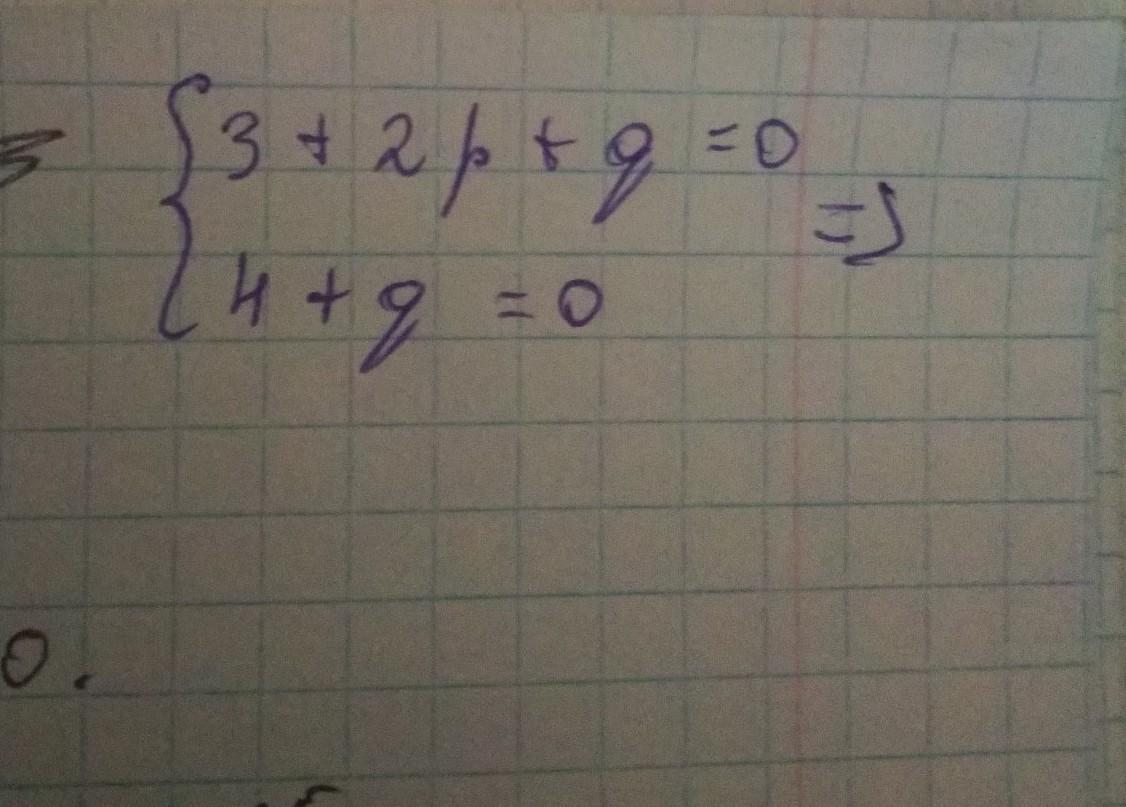 3 + 2p + q = 0
=>
4 + q = 0
0.